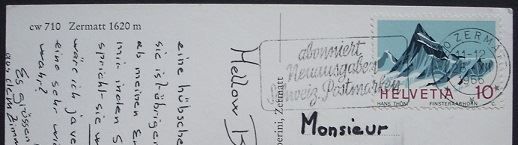 cw 710 Zermatt 1620 m
eine hübsche
sie ist übrigen
als meinen En
mir in den S
spricht sie u
wäre ich ja ve
eine sehr
wahr?
Es grüssen
aus dem Zimm
Mellow
Zermatt
abonniert
Neuausgaben
Schweiz. Postmarken
ZERMATT
11-12
HELVETIA 10
HANS THÖNI FINSTERAARHORN
Monsieur